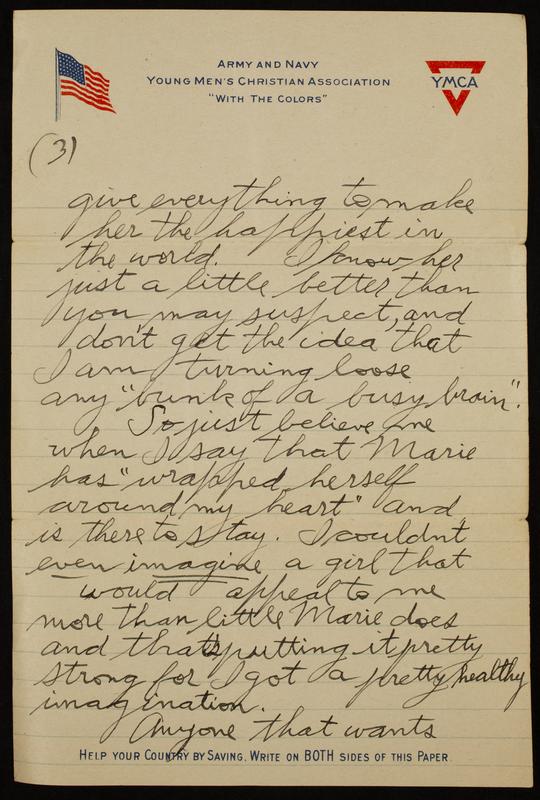 ARMY AND NAVY
YOUNG MEN'S CHRISTIAN ASSOCIATION
"WITH THE COLORS"
YMCA
(3)
give everything to make
her the happiest in
the world. I know her
just a little better than
you may suspect, and
don't get the idea that
I am turning loose
any "bunk of a busy brain".
So just believe me
when I say that Marie
has "wrapped herself
around my heart" and
is there to stay. I couldn't
even imagine a girl that
would appeal to me
more than little Marie does
and that's putting it pretty
strong for I got a pretty healthy
imagination.
Anyone that wants
HELP YOUR COUNTRY BY SAVING. WRITE ON BOTH SIDES OF THIS PAPER.